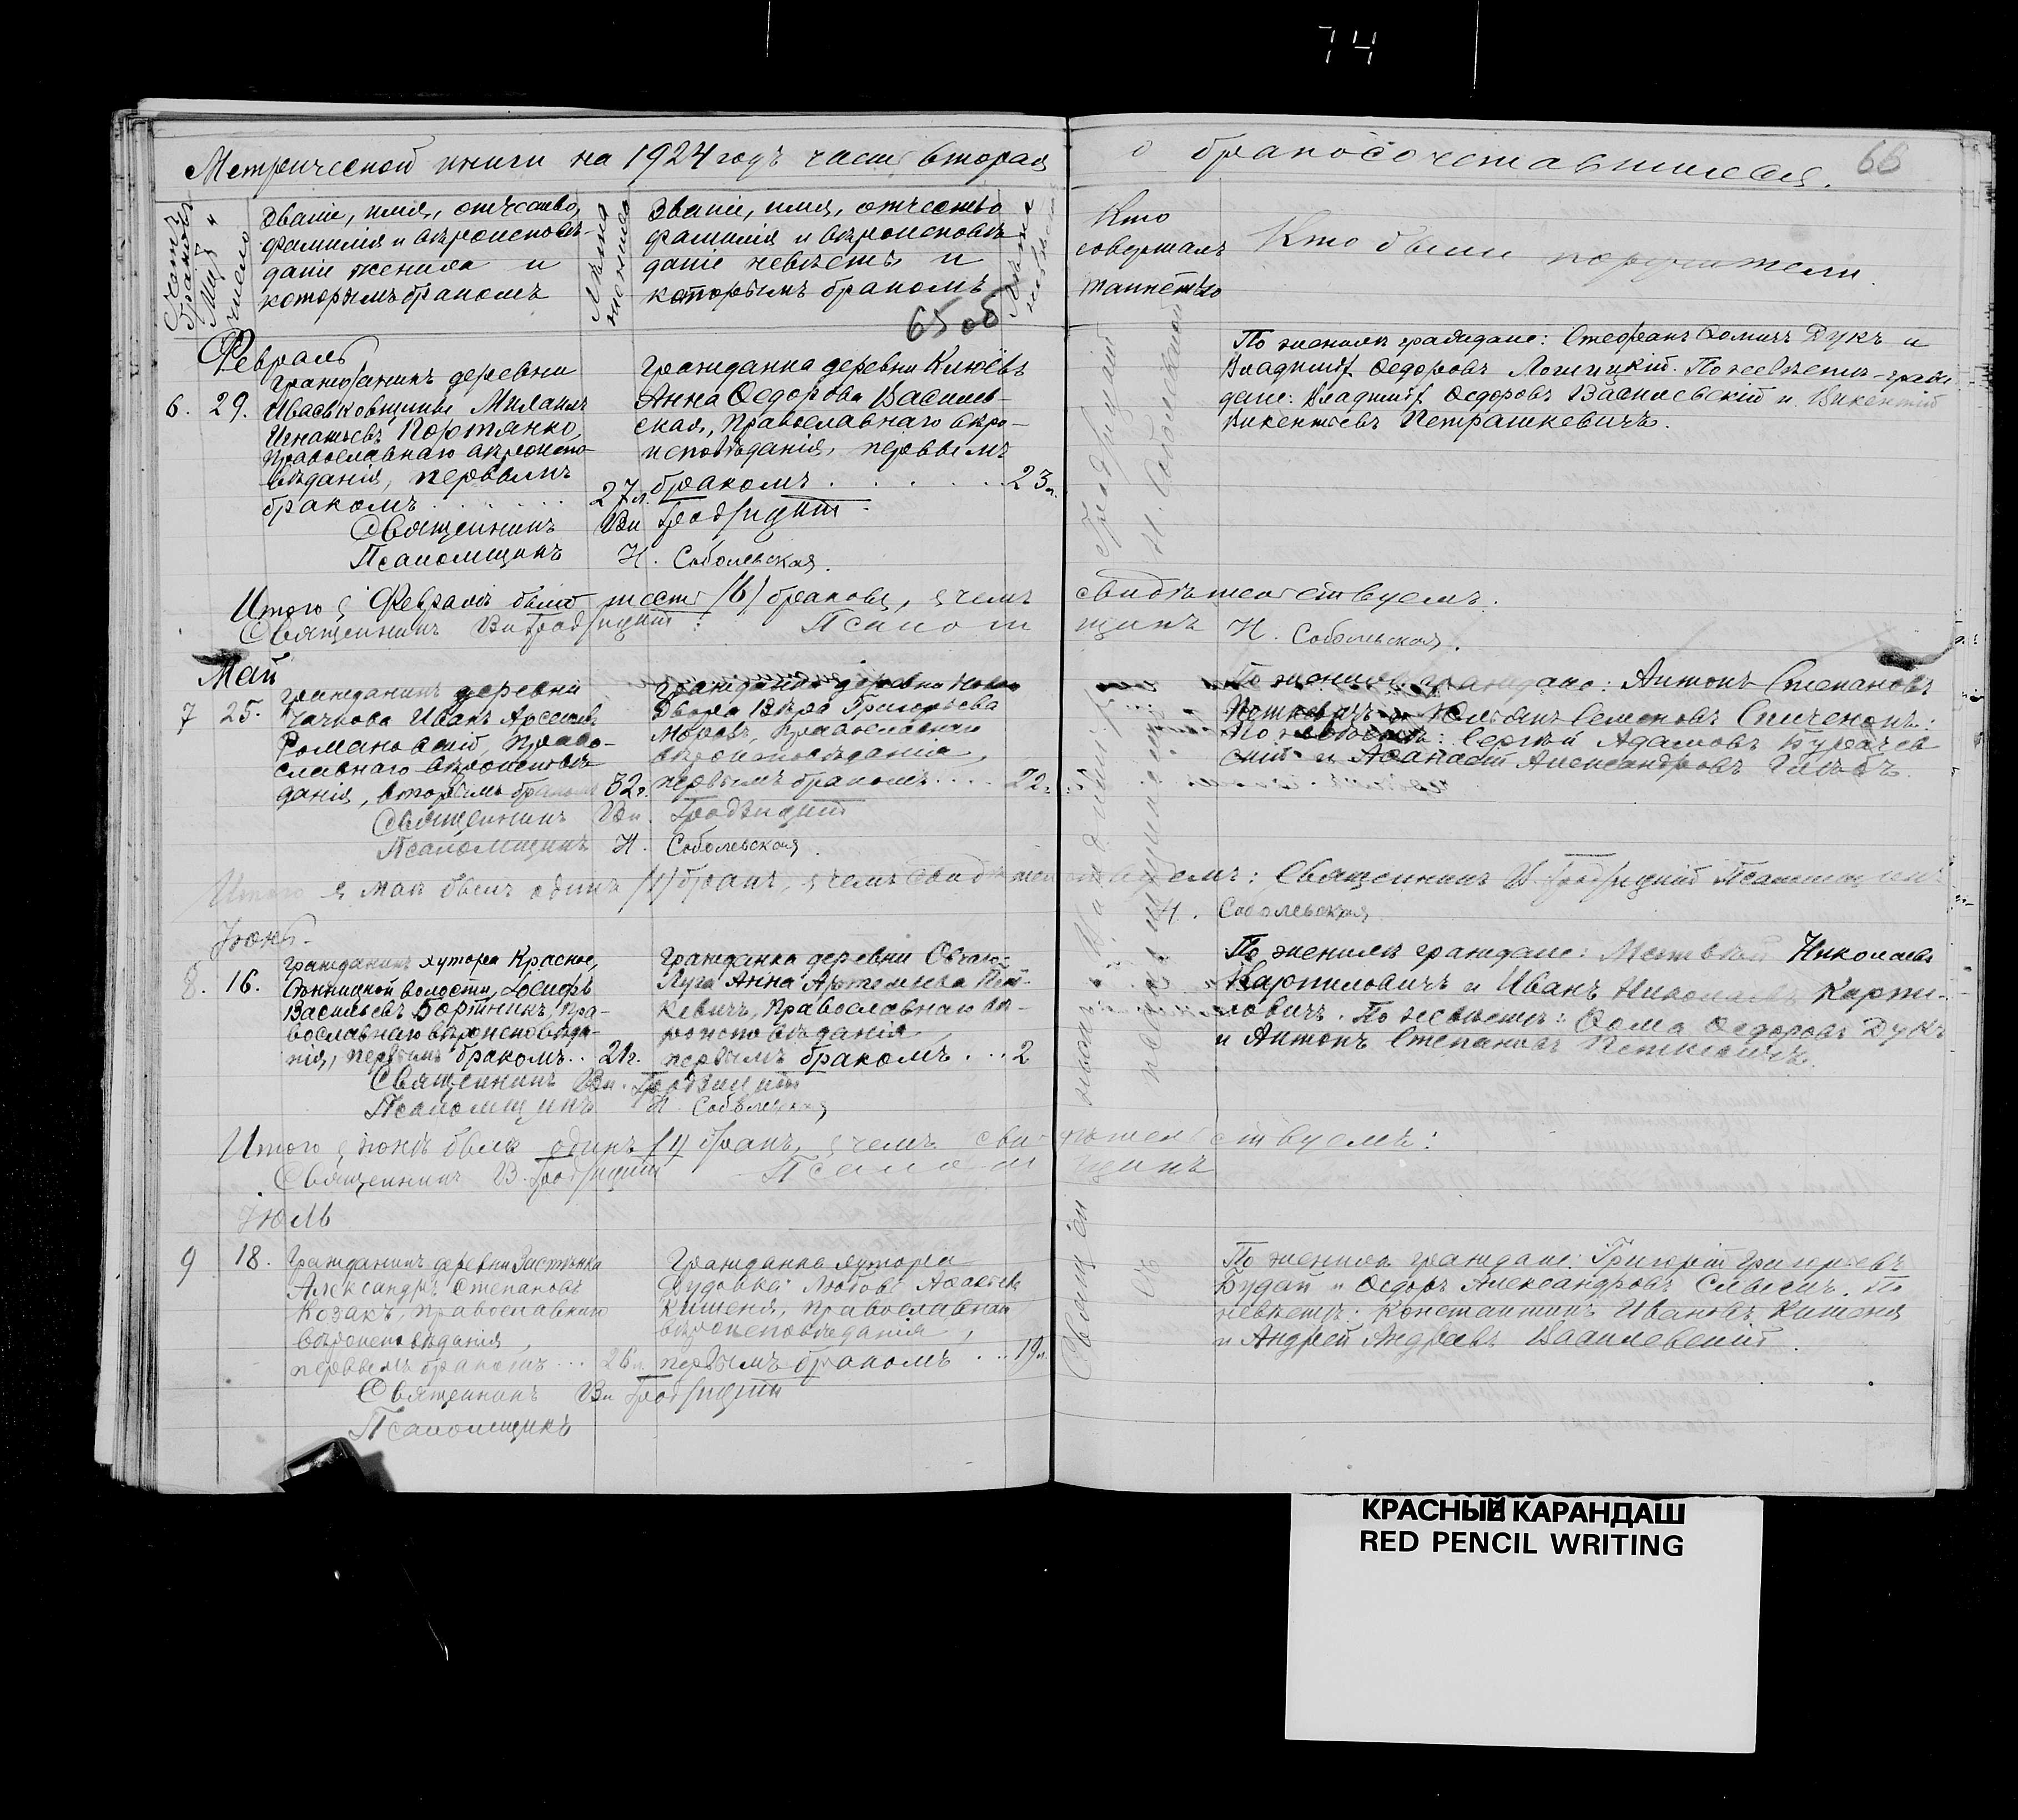 74
Метрической книги на 1924 годъ часть вторая о бракосочетавшихся. 66
Счетъ браковъ
Мѣс. и число
Званіе, имя, отчество,
фамилія и вѣроисповѣ-
даніе жениха и
которымъ бракомъ
Лѣта жениха
Званіе, имя, отчество
фамилія и вѣроисповѣ
даніе невѣсты и
которымъ бракомъ
65 об
Лѣта невѣсты
Кто
совершалъ
таинство
Кто были поручители
Февраль
6. 29.
Гражданинъ деревни
Иваськовщины Михаилъ
Игнатьевъ Портянко,
Православнаго вѣроиспо-
вѣданія, первымъ
бракомъ . . . . . 27 л.
Гражданка деревни Клюевъ
Анна Ѳедорова Василев-
ская, Православнаго вѣро-
исповѣданія, первымъ
бракомъ . . . . . . 23 л.
По женихѣ граждане: Стефанъ Ѳомичъ Дукъ и
Владиміръ Ѳедоровъ Логицкій. По невѣстѣ - граж
дане: Владиміръ Ѳедоровъ Василевскій и Викентій
Викентьевъ Петрашкевичъ.
Священникъ Вл. Гродзицкій
Псаломщикъ Н. Соболевская.
Итого въ Февралѣ было шесть /6/ браковъ, въ чемъ свидѣтельствуемъ.
Священникъ Вл. Гродзицкій: Псаломщикъ Н. Соболевская.
Май
7 25.
Гражданинъ деревни
Иванъ Арсеньевъ
Романовскій, Право-
славнаго вѣроисповѣ-
данія, вторымъ бракомъ 32 л.
Гражданка деревни Новаго
Двора Вѣра Григорьева
Православнаго
вѣроисповѣданія,
первымъ бракомъ . . . . 22 л.
По женихѣ граждане: Антонъ Степановъ
Петкевичъ и Юльянъ Семеновъ Спиченокъ:
По невѣстѣ: Сергѣй Адамовъ Бурачев
скій и Аѳанасій Александровъ
Священникъ Вл. Гродзицкій
Псаломщикъ Н. Соболевская.
Итого въ маѣ былъ одинъ /1/ бракъ, въ чемъ свидѣтельствуемъ: Священникъ В. Гродзицкій Псаломщикъ
Н. Соболевская
Іюнь.
8. 16.
Гражданинъ хутора Красное,
волости, Іосифъ
Васильевъ Бортникъ, Пра-
вославнаго вѣроисповѣда-
нія, первымъ бракомъ.. 21 г.
Гражданка деревни Овчаго-
Луга Анна Артемьева Пет-
кевичъ, Православнаго вѣ-
роисповѣданія,
первымъ бракомъ . . . 2
По женихѣ граждане: Николаевъ
Карпиловичъ и Иванъ Николаевъ Карпи-
ловичъ. По невѣстѣ: Ѳома Ѳедоровъ Дукъ
и Антонъ Степановъ Петкевичъ.
Священникъ Вл. Гродзицкій
Псаломщикъ Н. Соболевская
Итого въ іюнѣ былъ одинъ /1/ бракъ, въ чемъ свидѣтельствуемъ:
Священникъ В. Гродзицкій Псаломщикъ
Іюль
9 18.
Гражданинъ деревни Застѣнка
Александръ Степановъ
Козакъ, православнаго
вѣроисповѣданія,
первымъ бракомъ ... 26 л.
Гражданка хутора
Дудовка Любовь
Кишеня, православнаго
вѣроисповѣданія,
первымъ бракомъ . . 19 л.
По женихѣ граждане: Григорій Григорьевъ
Будай и Ѳедоръ Александровъ По
невѣстѣ: Константинъ Ивановъ Кишеня
и Андрей Андреевъ Василевскій.
Священникъ Вл. Гродзицкій
Псаломщикъ
КРАСНЫЙ КАРАНДАШ
RED PENCIL WRITING